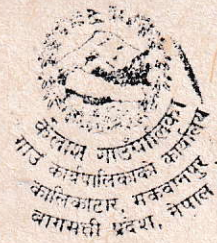 कैलाश गाउँपालिका
गाउँ कार्यपालिकाको कार्यालय
कालिकाटार, मकवानपुर
बागमती प्रदेश, नेपाल